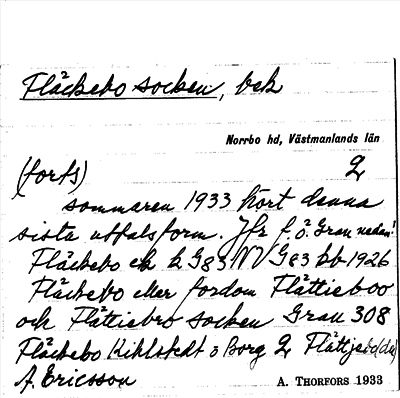 Fläckebo socken, bek
Norrbo hd, Västmanlands län
(forts) 2
sommaren 1933 hört denna
sista uttalsform. Jfr f. ö. Grau nedan!
Fläckebo ek k G83 NV G83 bb 1926
Fläckebo eller fordom Flättieboo
och Flättiebro socken Grau 308
Fläckebo Kihlstedt o Borg 2
A. Ericsson A. THORFORS 1933